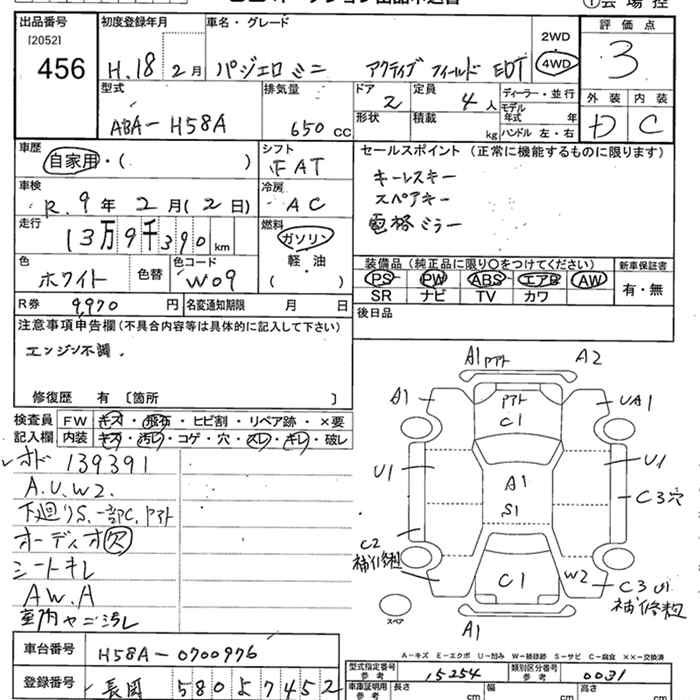 出品番号 初度登録年月 車名・グレード 評価点
[2052]
456
H.18 2月 パジェロミニ アクティブフィールド EDT 2WD 4WD 3
型式 排気量 ドア 2 定員 4人 ディーラー・並行 外装 内装
ABA-H58A 650cc 形状 積載 kg モデル年式 年 ハンドル 左・右 D C
車歴 自家用・( ) シフト FAT
セールスポイント (正常に機能するものに限ります)
キーレスキー
スペアキー
電格ミラー
車検 R.9年2月(2日) 冷房 AC
走行 13万9千390km 燃料 ガソリン 軽・油 ( )
色 ホワイト 色替 色コード W09
装備品 (純正品に限り○をつけてください) 新車保証書
PS PW ABS エアB AW 有・無
SR ナビ TV カワ
R券 9,970円 名変通知期限 月 日
後日品
注意事項申告欄 (不具合内容等は具体的に記入して下さい)
エンジン不調.
修復歴 有 〔箇所 〕
検査員記入欄
FW キズ・飛石・ヒビ割・リペア跡・×要
内装 キズ・汚レ・コゲ・穴・スレ・キレ・破レ
オド 139391
A.U.W2.
下廻りS.一部C.アト
オーディオ欠
シートキレ
AW.A
車内ヤニ汚レ
A1 アト A2
A1 アト C1 UA1
U1 A1 S1 U1
C3穴
C2 補修粗
C1 W2 C3 U1 補修粗
スペア A1
A-キズ E-エクボ U-凹み W-補修跡 S-サビ C-腐食 ××-交換済
車台番号 H58A-0700976
登録番号 長岡 580 よ 7452
型式指定番号 参考 15254 類別区分番号 参考 0031
車庫証明用 参考 長さ cm 幅 cm 高さ cm